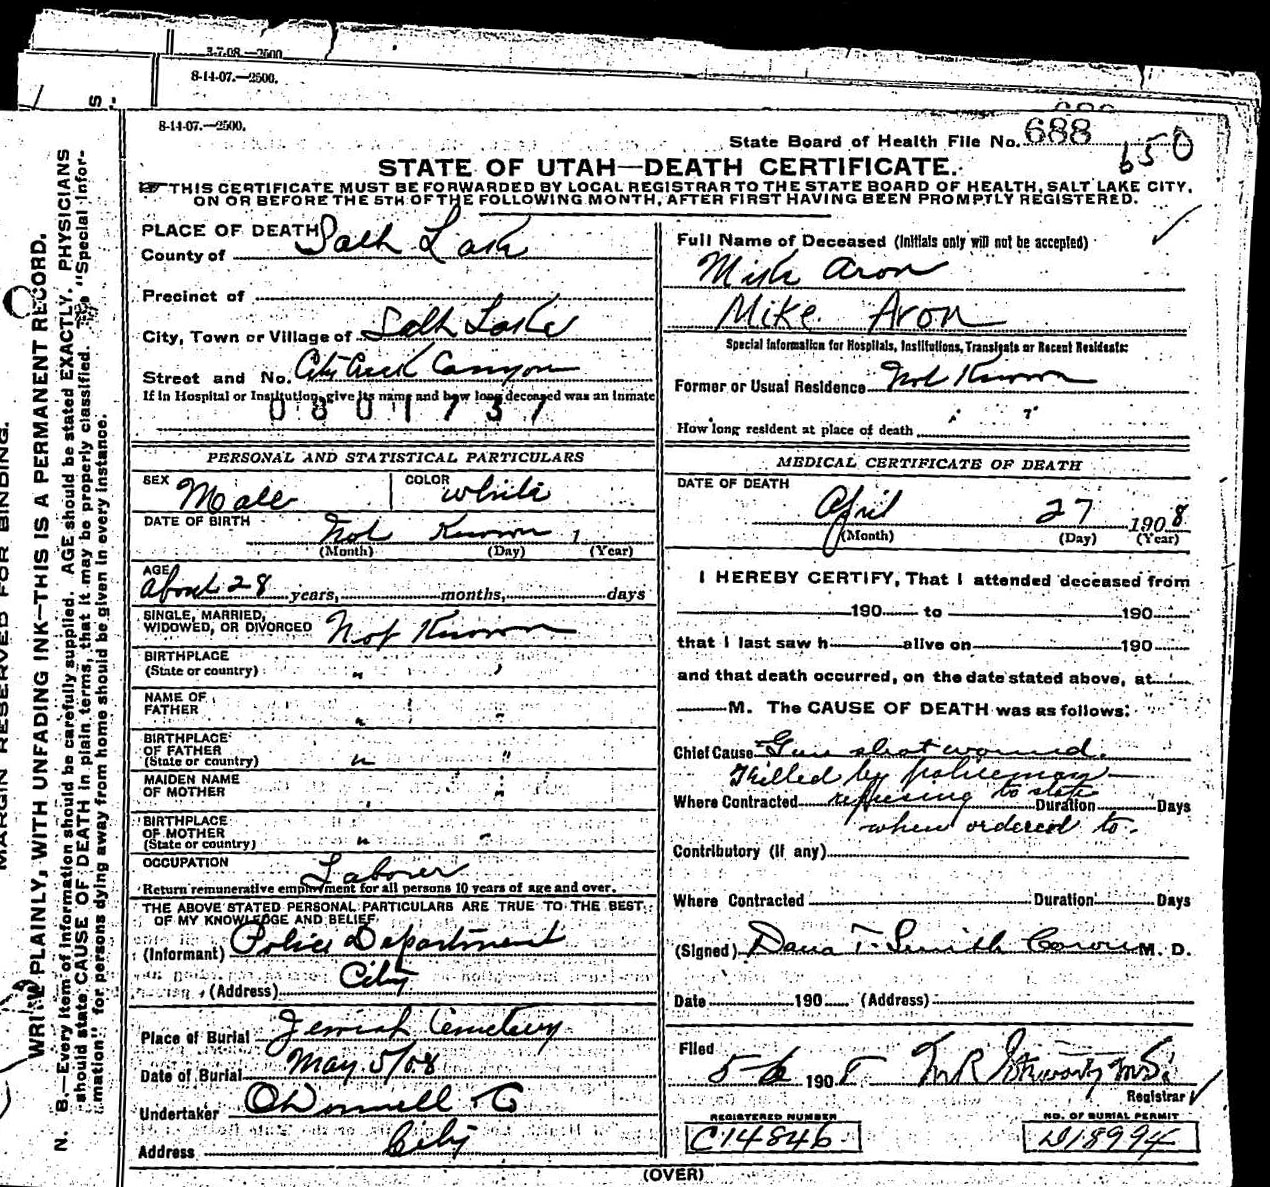 3-7-08.—2500
8-14-07.—2500.
8-14-07.—2500.
State Board of Health File No. 688
650
STATE OF UTAH—DEATH CERTIFICATE.
THIS CERTIFICATE MUST BE FORWARDED BY LOCAL REGISTRAR TO THE STATE BOARD OF HEALTH, SALT LAKE CITY,
ON OR BEFORE THE 5TH OF THE FOLLOWING MONTH, AFTER FIRST HAVING BEEN PROMPTLY REGISTERED.
MARGIN RESERVED FOR BINDING.
WRITE PLAINLY, WITH UNFADING INK—THIS IS A PERMANENT RECORD.
N. B.—Every item of information should be carefully supplied. AGE should be stated EXACTLY. PHYSICIANS
should state CAUSE OF DEATH in plain terms, that it may be properly classified. The "Special Infor-
mation" for persons dying away from home should be given in every instance.
PLACE OF DEATH
County of Salt Lake
Precinct of
City, Town or Village of Salt Lake
Street and No. City Creek Canyon
If in Hospital or Institution, give its name and how long deceased was an inmate
0801737
PERSONAL AND STATISTICAL PARTICULARS
SEX Male COLOR White
DATE OF BIRTH Not Known
(Month) (Day) (Year)
AGE About 28 years, months, days
SINGLE, MARRIED,
WIDOWED, OR DIVORCED Not Known
BIRTHPLACE
(State or country) " "
NAME OF
FATHER " "
BIRTHPLACE
OF FATHER
(State or country) " "
MAIDEN NAME
OF MOTHER " "
BIRTHPLACE
OF MOTHER
(State or country) " "
OCCUPATION Laborer
Return remunerative employment for all persons 10 years of age and over.
THE ABOVE STATED PERSONAL PARTICULARS ARE TRUE TO THE BEST
OF MY KNOWLEDGE AND BELIEF
(Informant) Police Department
(Address) City
Place of Burial Jewish Cemetery
Date of Burial May 5/08
Undertaker O'Donnell & Co
Address City
Full Name of Deceased (Initials only will not be accepted)
Mike Aron
Mike Aron
Special Information for Hospitals, Institutions, Transients or Recent Residents:
Former or Usual Residence Not Known
How long resident at place of death " "
MEDICAL CERTIFICATE OF DEATH
DATE OF DEATH
April 27 1908
(Month) (Day) (Year)
I HEREBY CERTIFY, That I attended deceased from
190 to 190
that I last saw h alive on 190
and that death occurred, on the date stated above, at
M. The CAUSE OF DEATH was as follows:
Chief Cause Gun shot wound.
Killed by policeman
Where Contracted refusing to state Duration Days
when ordered to.
Contributory (if any)
Where Contracted Duration Days
(Signed) Dana T. Smith Coroner M. D.
Date 190 (Address)
Filed
5-6 1908 M.D.
Registrar
REGISTERED NUMBER
C14846
NO. OF BURIAL PERMIT
D18994
(OVER)